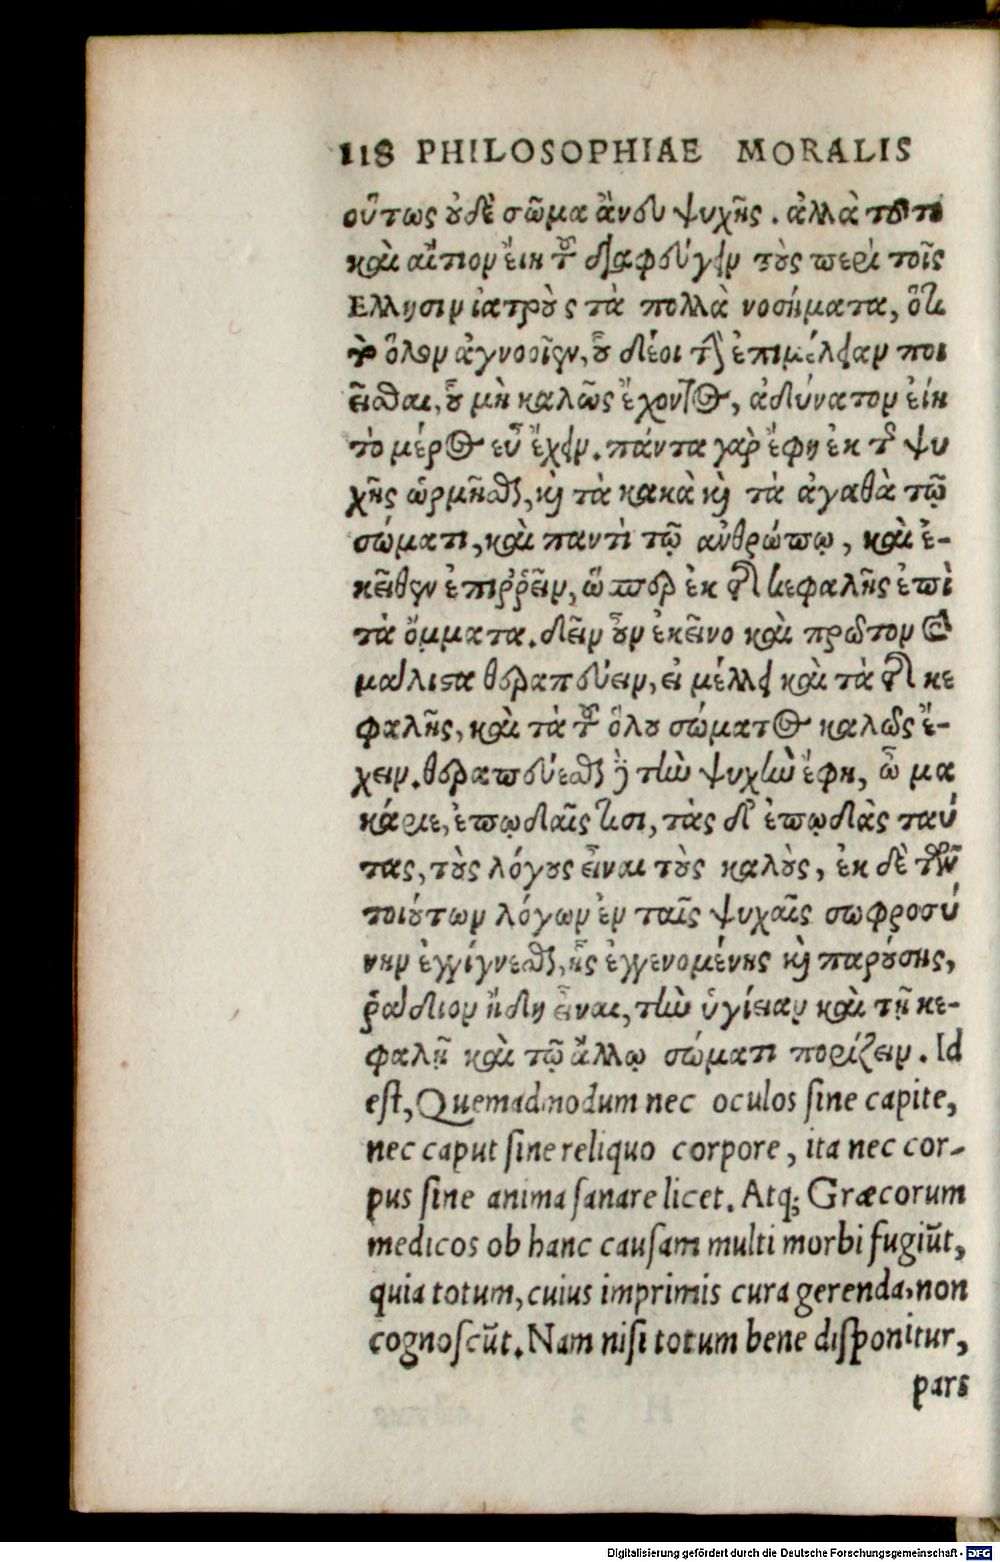 118 PHILOSOPHIAE MORALIS
οὕτως ȣ̓δὲ σῶμα ἄνευ ψυχῆς . ἀλλὰ τȣ͂το
καὶ αἴτιον εἴη τȣ͂ διαφεύγειν τȣ̀ς περὶ τοῖς
Ελλησιν ἰατρȣ̀ς τὰ πολλὰ νοσήματα, ὅτι
τὸ ὅλον ἀγνοοῖεν, ȣ͗ δέοι τὴν ἐπιμέλειαν ποι
εῖσθαι, ȣ͗ μὴ καλῶς ἔχοντος, ἀδύνατον εἴη
τὸ μέρος εὖ ἔχειν. πάντα γὰρ ἔφη ἐκ τῆς ψυ
χῆς ὡρμῆσθαι, κ̀ τὰ κακὰ κ̀ τὰ ἀγαθὰ τῷ
σώματι, καὶ παντὶ τῷ ἀνθρώπῳ , καὶ ἐ-
κεῖθεν ἐπιῤῥεῖν, ὥσπερ ἐκ τῆς κεφαλῆς ἐπὶ
τὰ ὄμματα. δεῖν ȣ͗ν ἐκεῖνο καὶ πρῶτον καὶ
μάλιστα θεραπεύειν, εἰ μέλλει καὶ τὰ τῆς κε
φαλῆς, καὶ τὰ τȣ͂ ὅλȣ σώματος καλῶς ἔ-
χειν. θεραπεύεσθαι δὲ τὴν ψυχὴν ἔφη, ὦ μα
κάριε, ἐπῳδαῖς τισι, τὰς δ' ἐπῳδὰς ταύ
τας, τȣ̀ς λόγȣς εἶναι τȣ̀ς καλȣ̀ς, ἐκ δὲ τῶν
τοιȣ́των λόγων ἐν ταῖς ψυχαῖς σωφροσύ
νην ἐγγίγνεσθαι, ἧς ἐγγενομένης κ̀ παρȣ́σης,
ῥάδιον ἤδη εἶναι, τὴν ὑγίειαν καὶ τῇ κε-
φαλῇ καὶ τῷ ἄλλῳ σώματι πορίζειν. Id
est, Quemadmodum nec oculos sine capite,
nec caput sine reliquo corpore, ita nec cor-
pus sine anima sanare licet. Atq; Græcorum
medicos ob hanc causam multi morbi fugiũt,
quia totum, cuius imprimis cura gerenda, non
cognoscũt. Nam nisi totum bene disponitur,
pars
Digitalisierung gefördert durch die Deutsche Forschungsgemeinschaft - DFG